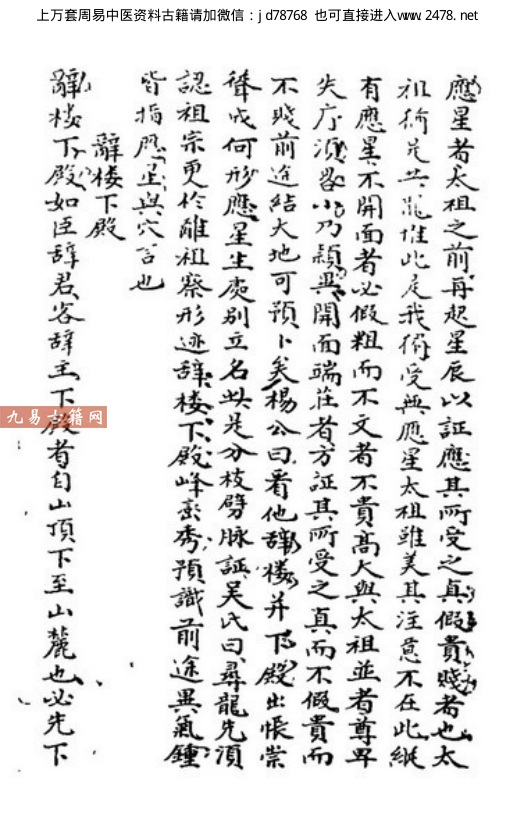 上万套周易中医资料古籍请加微信：jd78768 也可直接进入www.2478.net
應星者太祖之前再起星辰以証應其所受之真假貴賤者也太
祖猶兄此是我所受無應星太祖雖美其注意不在此縱
有應星不開面者必假粗而不文者不貴高大與太祖並者尊卑
失序須畧小乃穎異開面端莊者方証其所受之真而不假貴而
不賤前途結大地可預卜矣楊公曰看他辭楼并下殿出帳崇
聳成何形應星生處別立名此是分枝劈脉証吳氏曰尋龍先須
認祖宗更於離祖察形迹辞楼下殿峰巒秀預識前途異氣鍾
皆指應星與穴言也
辭楼下殿
辭楼下殿如臣辞君客辞主下殿者自山頂下至山麓也必先下
九易古籍网